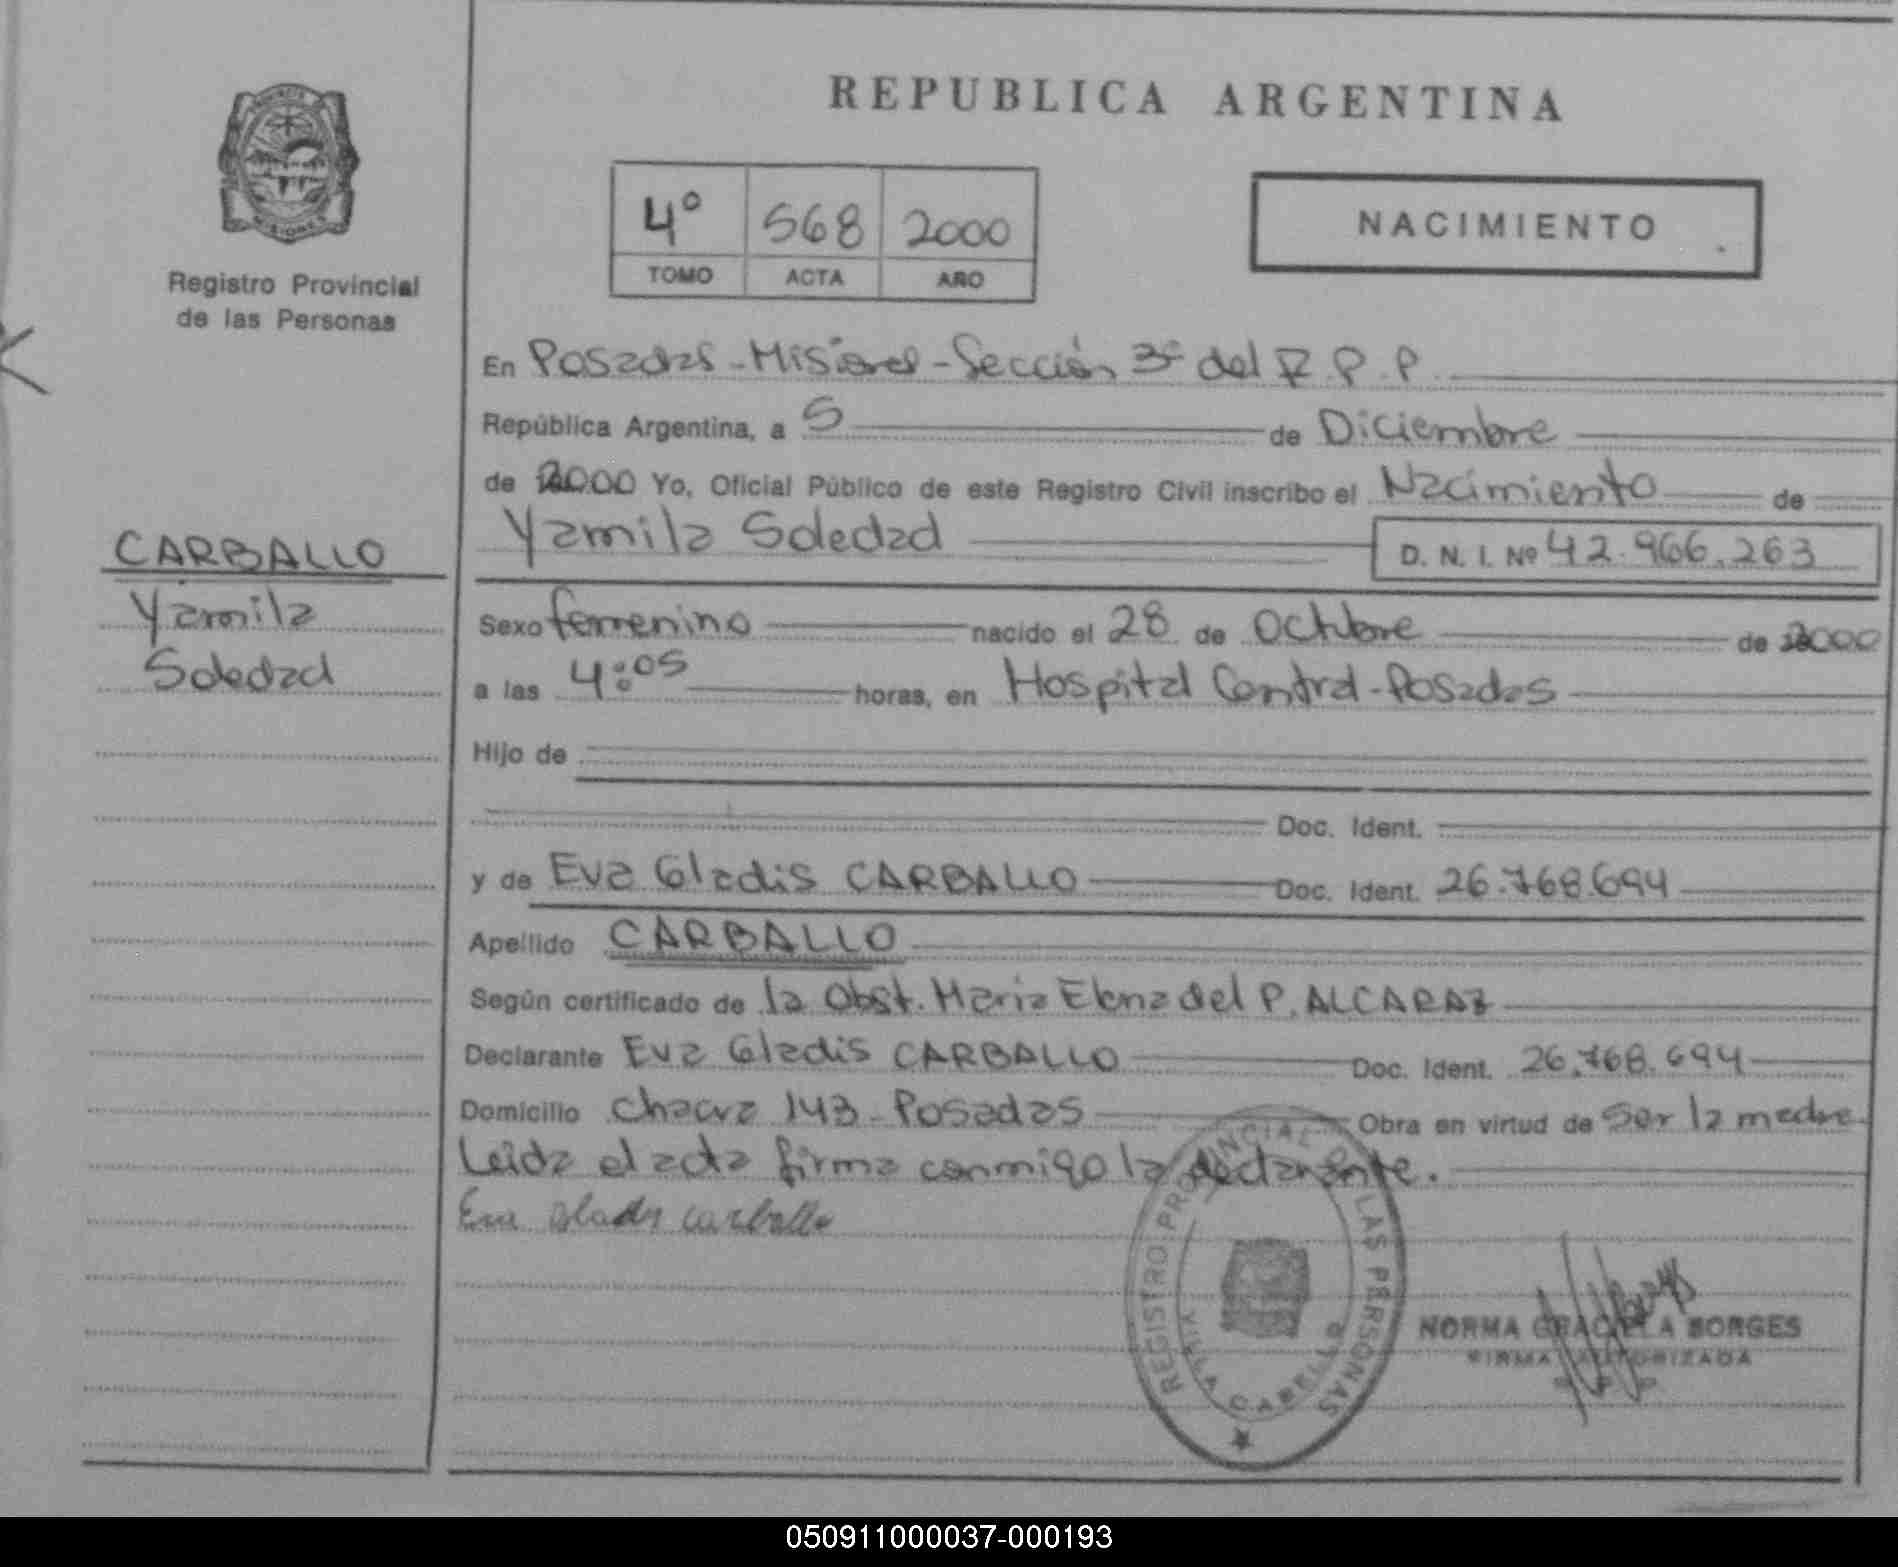 REPUBLICA ARGENTINA
4° 568 2000
TOMO ACTA AÑO
NACIMIENTO
Registro Provincial
de las Personas
En Posadas - Misiones - Sección 3° del R.P.P.
República Argentina, a 5 de Diciembre
de 2000 Yo, Oficial Público de este Registro Civil inscribo el Nacimiento de
Yamila Soledad D. N. I. Nº 42.966.263
CARBALLO
Yamila
Soledad
Sexo femenino nacido el 28 de Octubre de 2000
a las 4:05 horas, en Hospital Central - Posadas
Hijo de
Doc. Ident.
y de Eva Gladis CARBALLO Doc. Ident. 26.768.694
Apellido CARBALLO
Según certificado de la Obst. Maria Elena del P. ALCARAZ
Declarante Eva Gladis CARBALLO Doc. Ident. 26.768.694
Domicilio Chacra 143 - Posadas Obra en virtud de Ser la madre
Leída el acta firma conmigo la declarante.
Eva Gladys Carballo
REGISTRO PROVINCIAL DE LAS PERSONAS
VILLA CABELLO
NORMA GRACIELA BORGES
FIRMA AUTORIZADA
050911000037-000193